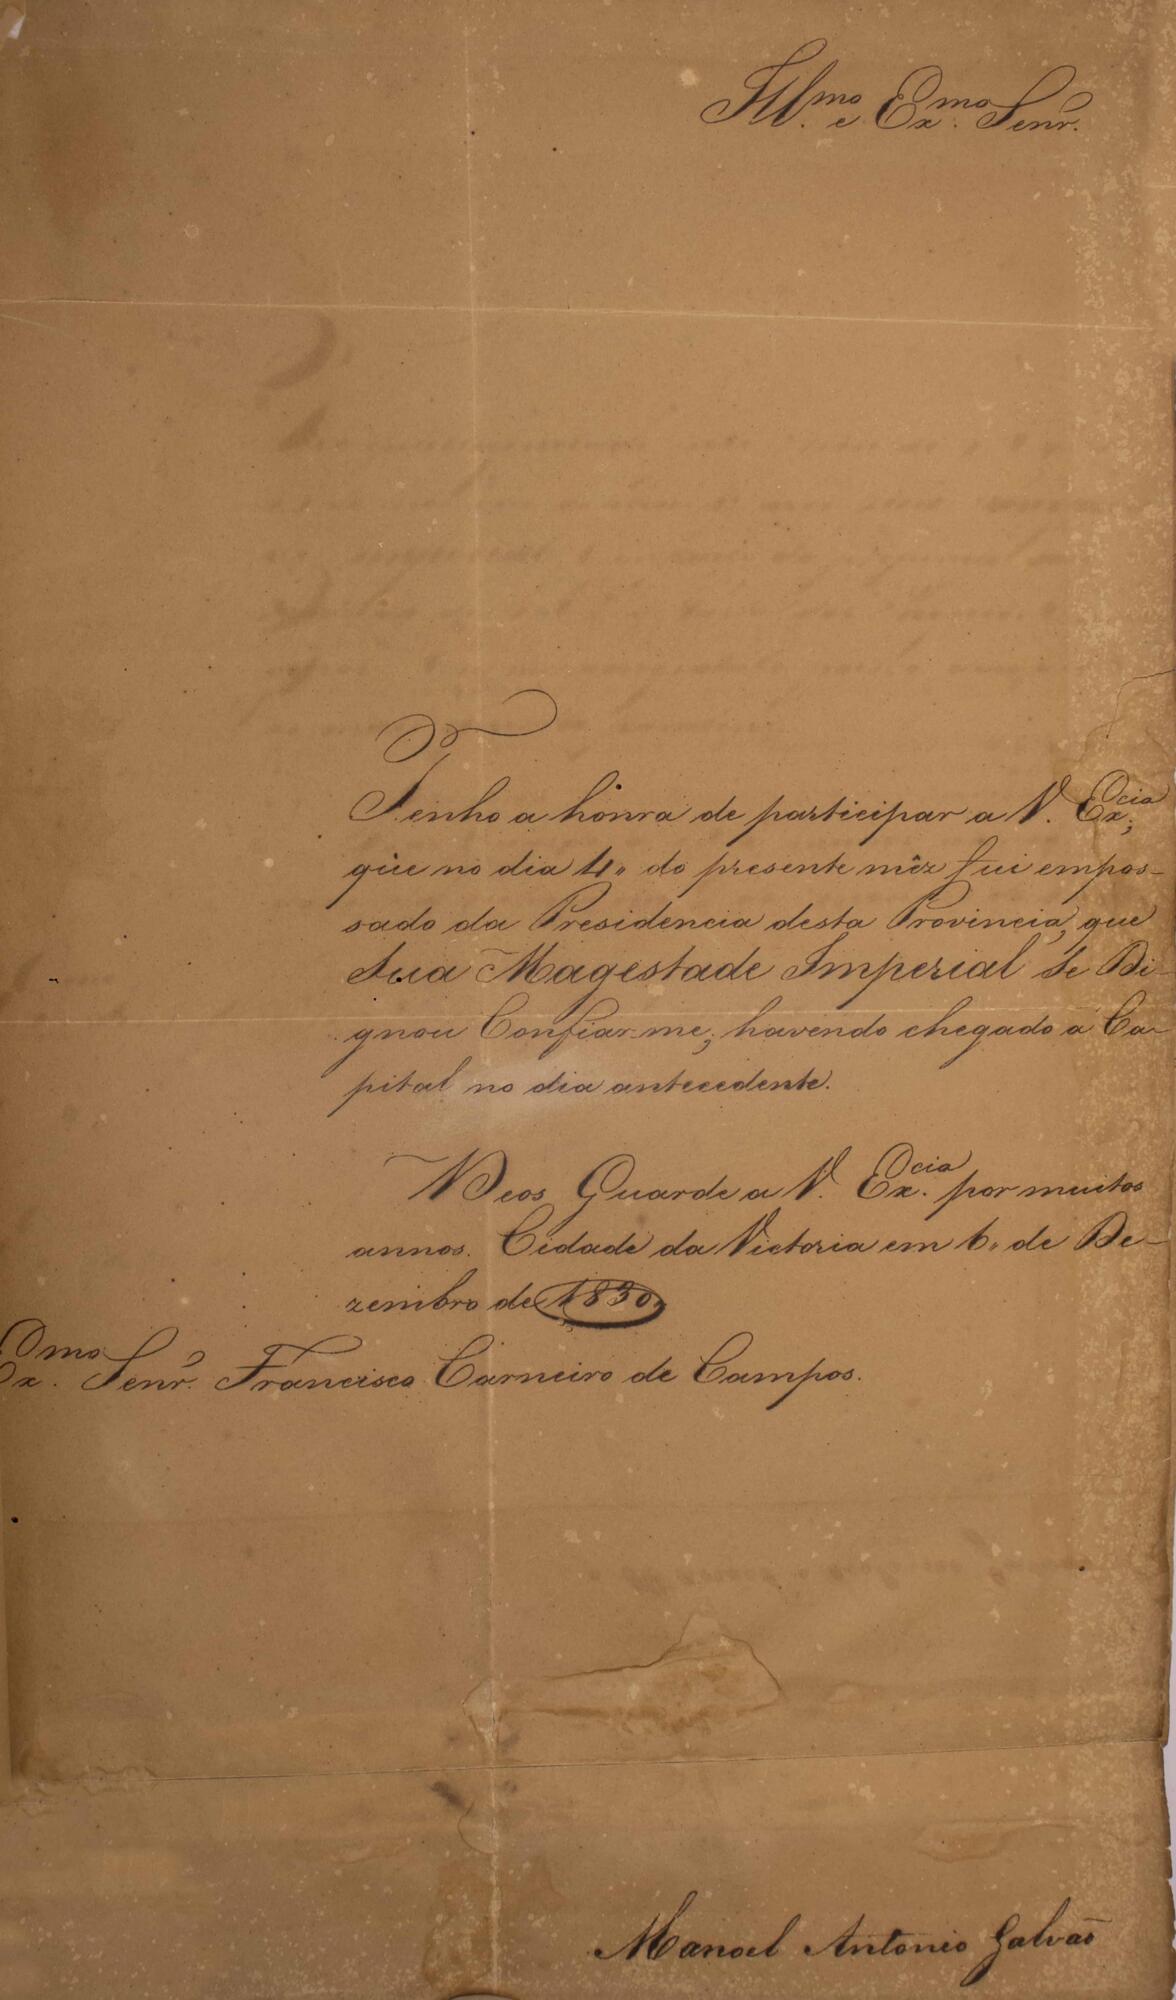 Ill.mo e Ex.mo Senr.
Tenho a honra de participar a V. Ex.cia;
que no dia 4. do presente mêz fui empos-
sado da Presidencia desta Provincia, que
Sua Magestade Imperial Se Di-
gnou Confiar-me; havendo chegado á Ca-
pital no dia antecedente.
Deos Guarde a V. Ex.cia por muitos
annos. Cidade da Victoria em 6. de De-
zembro de 1830.
Ex.mo Senr. Francisco Carneiro de Campos.
Manoel Antonio Galvão